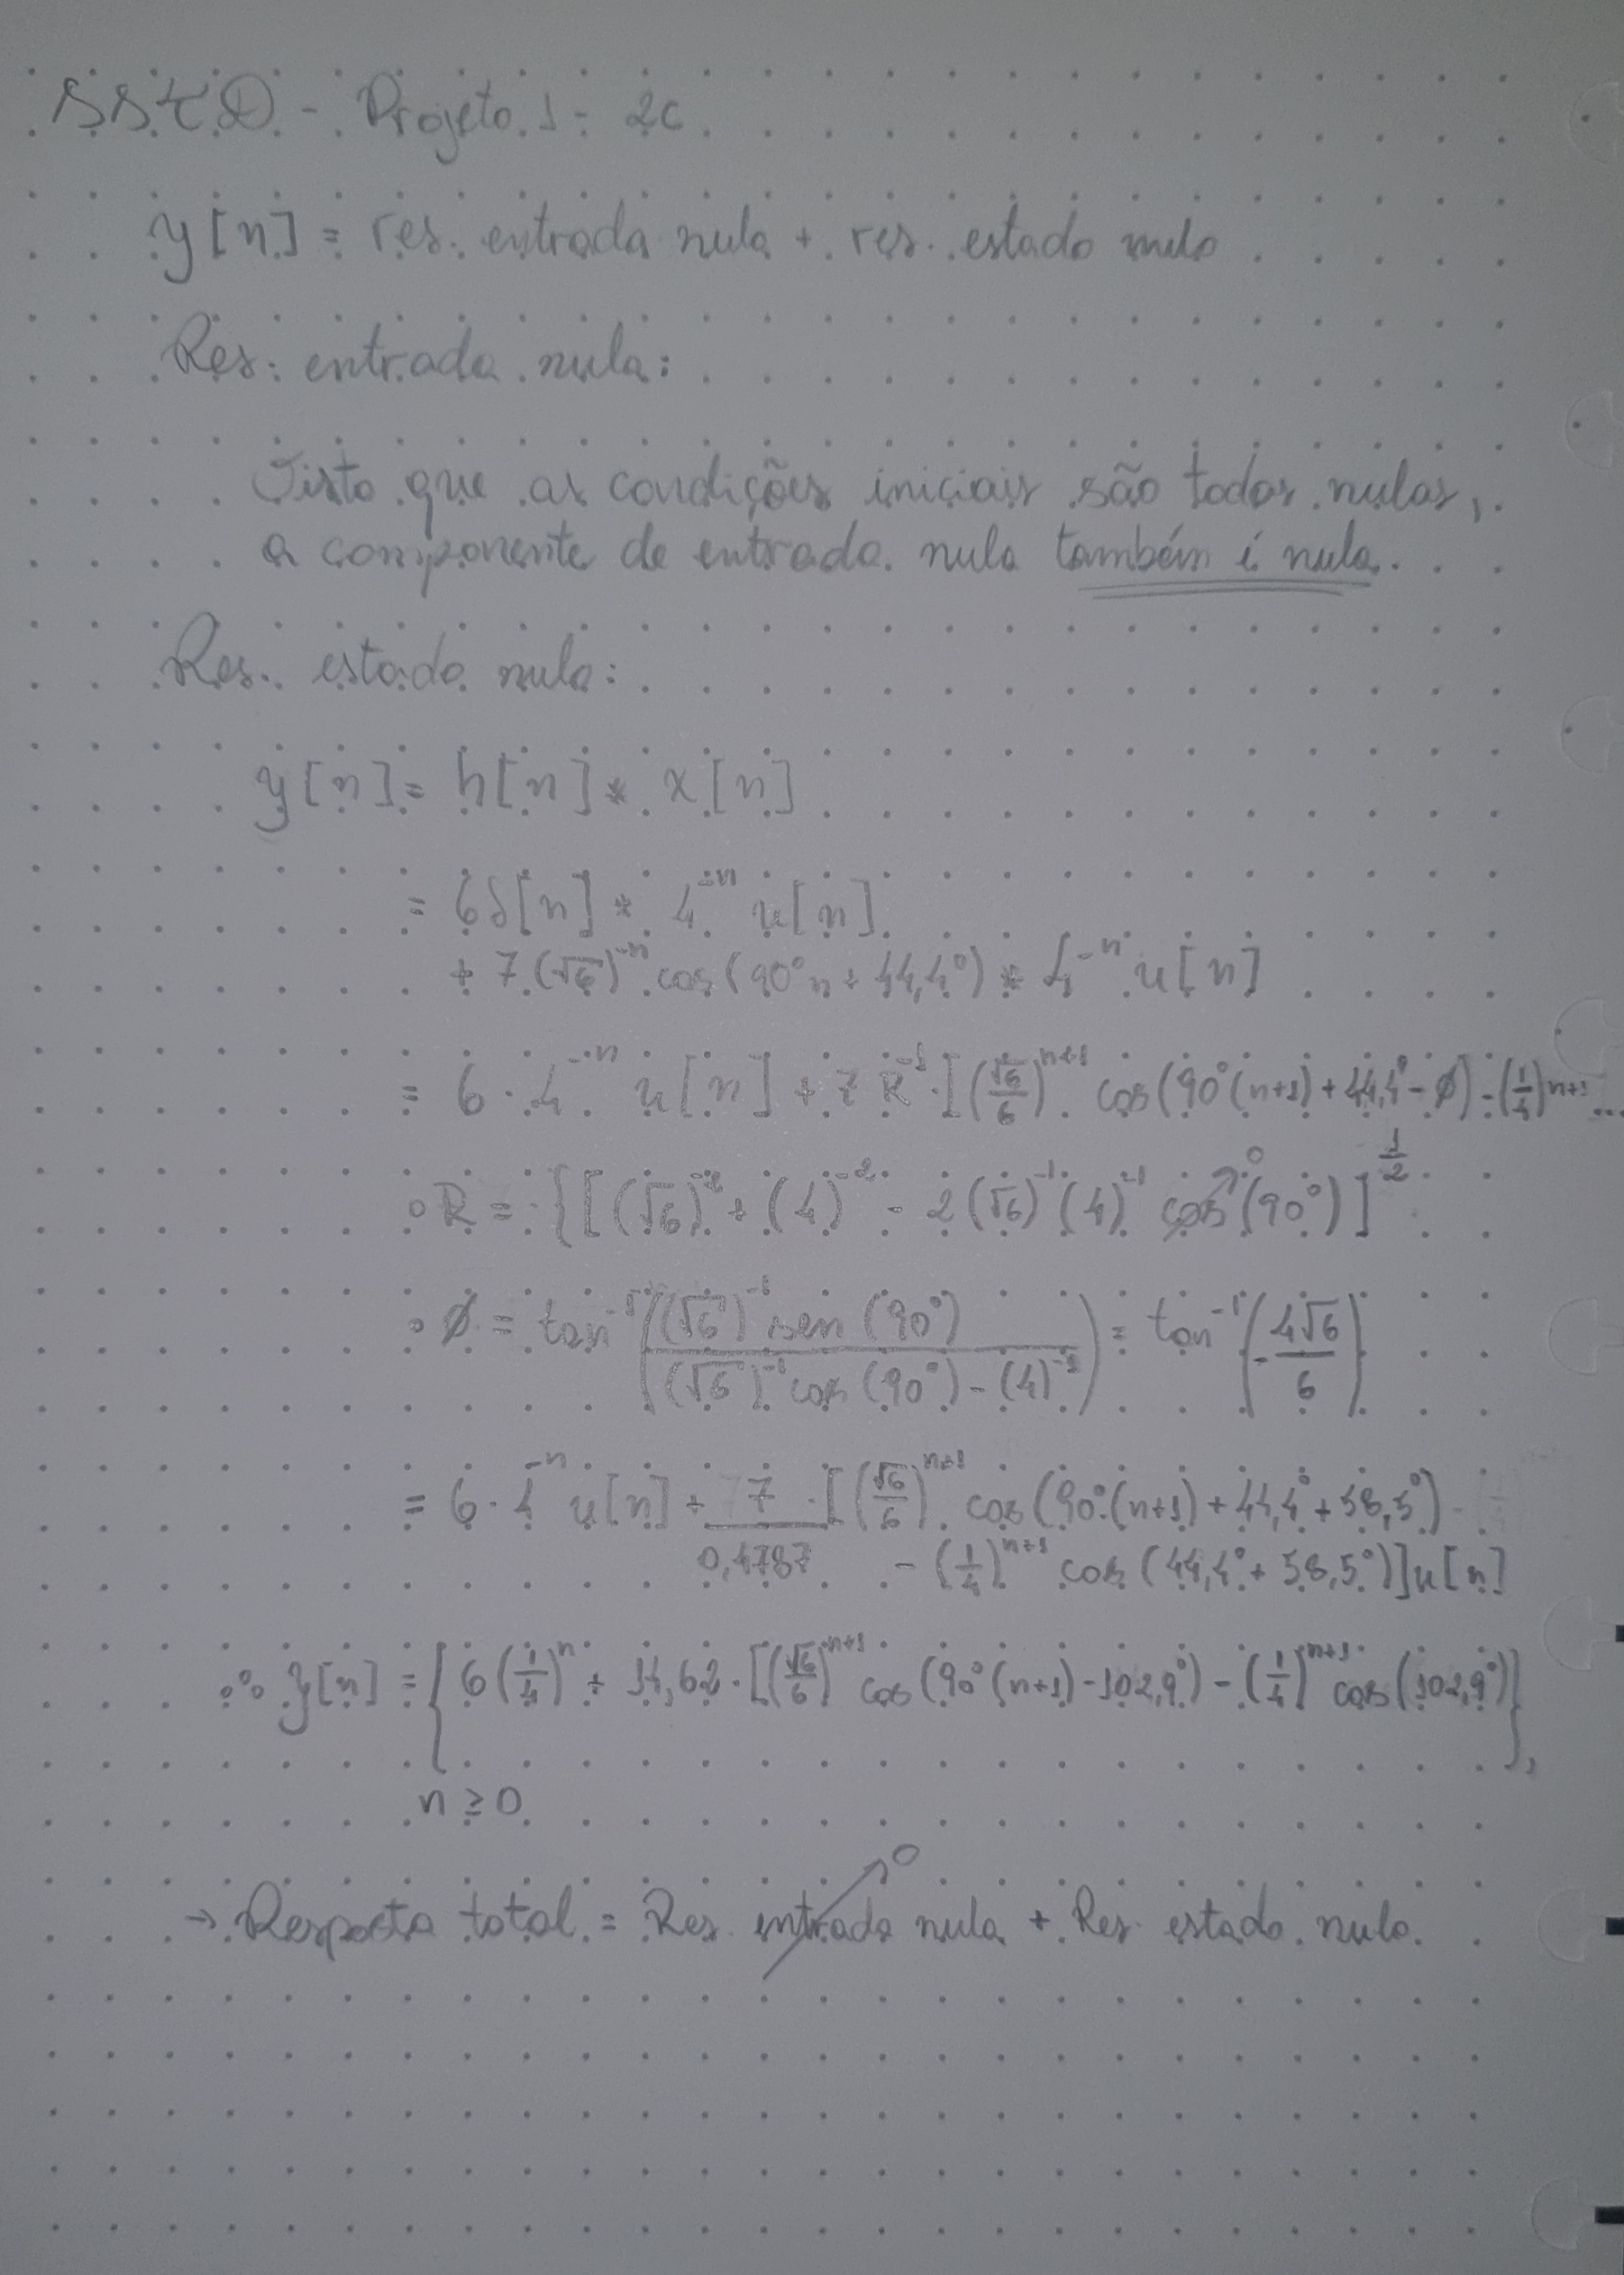 SSTD - Projeto 1 - 2c
y[n] = res. entrada nula + res. estado nulo
Res. entrada nula:
Visto que as condições iniciais são todas nulas,
a componente de entrada nula também é nula.
Res. estado nulo:
y[n] = h[n] * x[n]
= 6δ[n] * 4^-n u[n]
+ 7(√6)^-n cos(90°n + 44,4°) * 4^-n u[n]
= 6 · 4^-n u[n] + 7 R^-1 · [(√6/6)^n+1 cos(90°(n+1) + 44,4° - ø) - (1/4)^n+1 ...
∘ R = {[(√6)^-2 + (4)^-2 - 2(√6)^-1 (4)^-1 cos(90°)]^1/2 0
∘ ø = tan^-1((√6)^-1 sen(90°) / (√6)^-1 cos(90°) - (4)^-1) = tan^-1(-4√6/6)
= 6 · 4^-n u[n] + 7/0,4787 · [(√6/6)^n+1 cos(90°(n+1) + 44,4° + 58,5°)
- (1/4)^n+1 cos(44,4° + 58,5°)]u[n]
∴ y[n] = {6(1/4)^n + 14,62 · [(√6/6)^n+1 cos(90°(n+1) - 102,9°) - (1/4)^n+1 cos(102,9°)]},
n ≥ 0
→ Resposta total = Res. entrada nula 0 + Res. estado nulo.